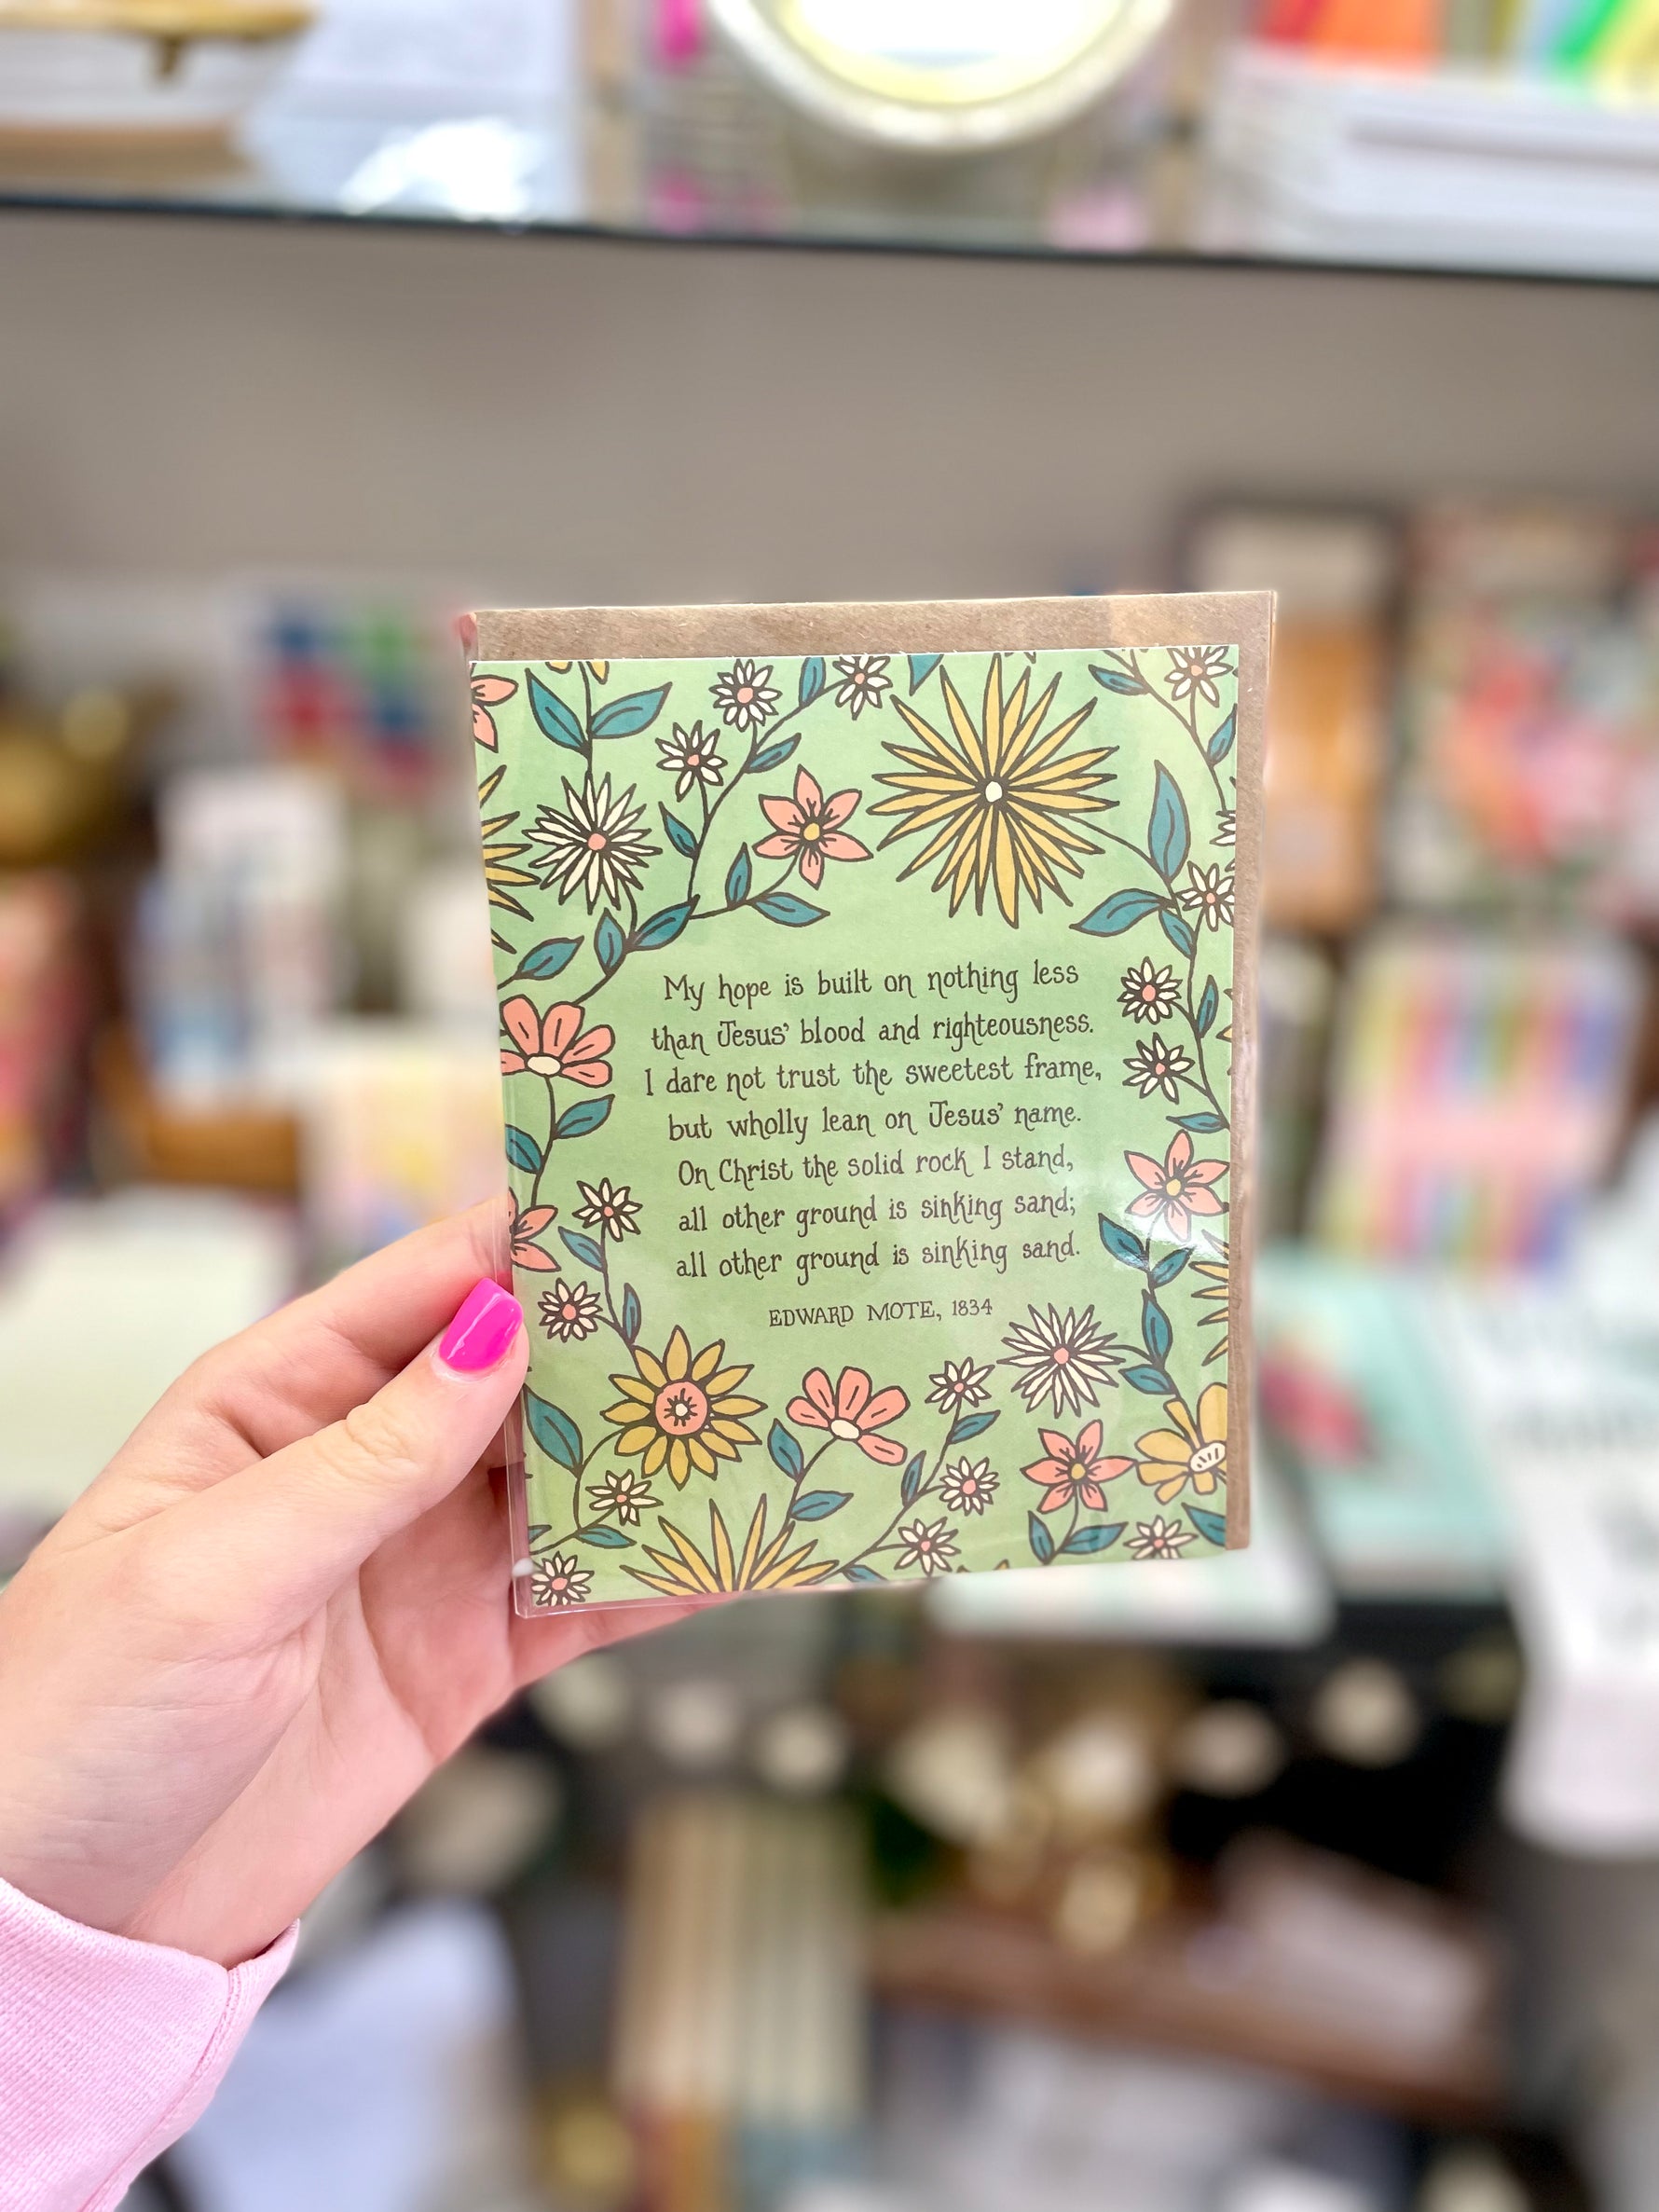 My hope is built on nothing less
than Jesus' blood and righteousness.
I dare not trust the sweetest frame,
but wholly lean on Jesus' name.
On Christ the solid rock I stand,
all other ground is sinking sand;
all other ground is sinking sand.
EDWARD MOTE, 1834